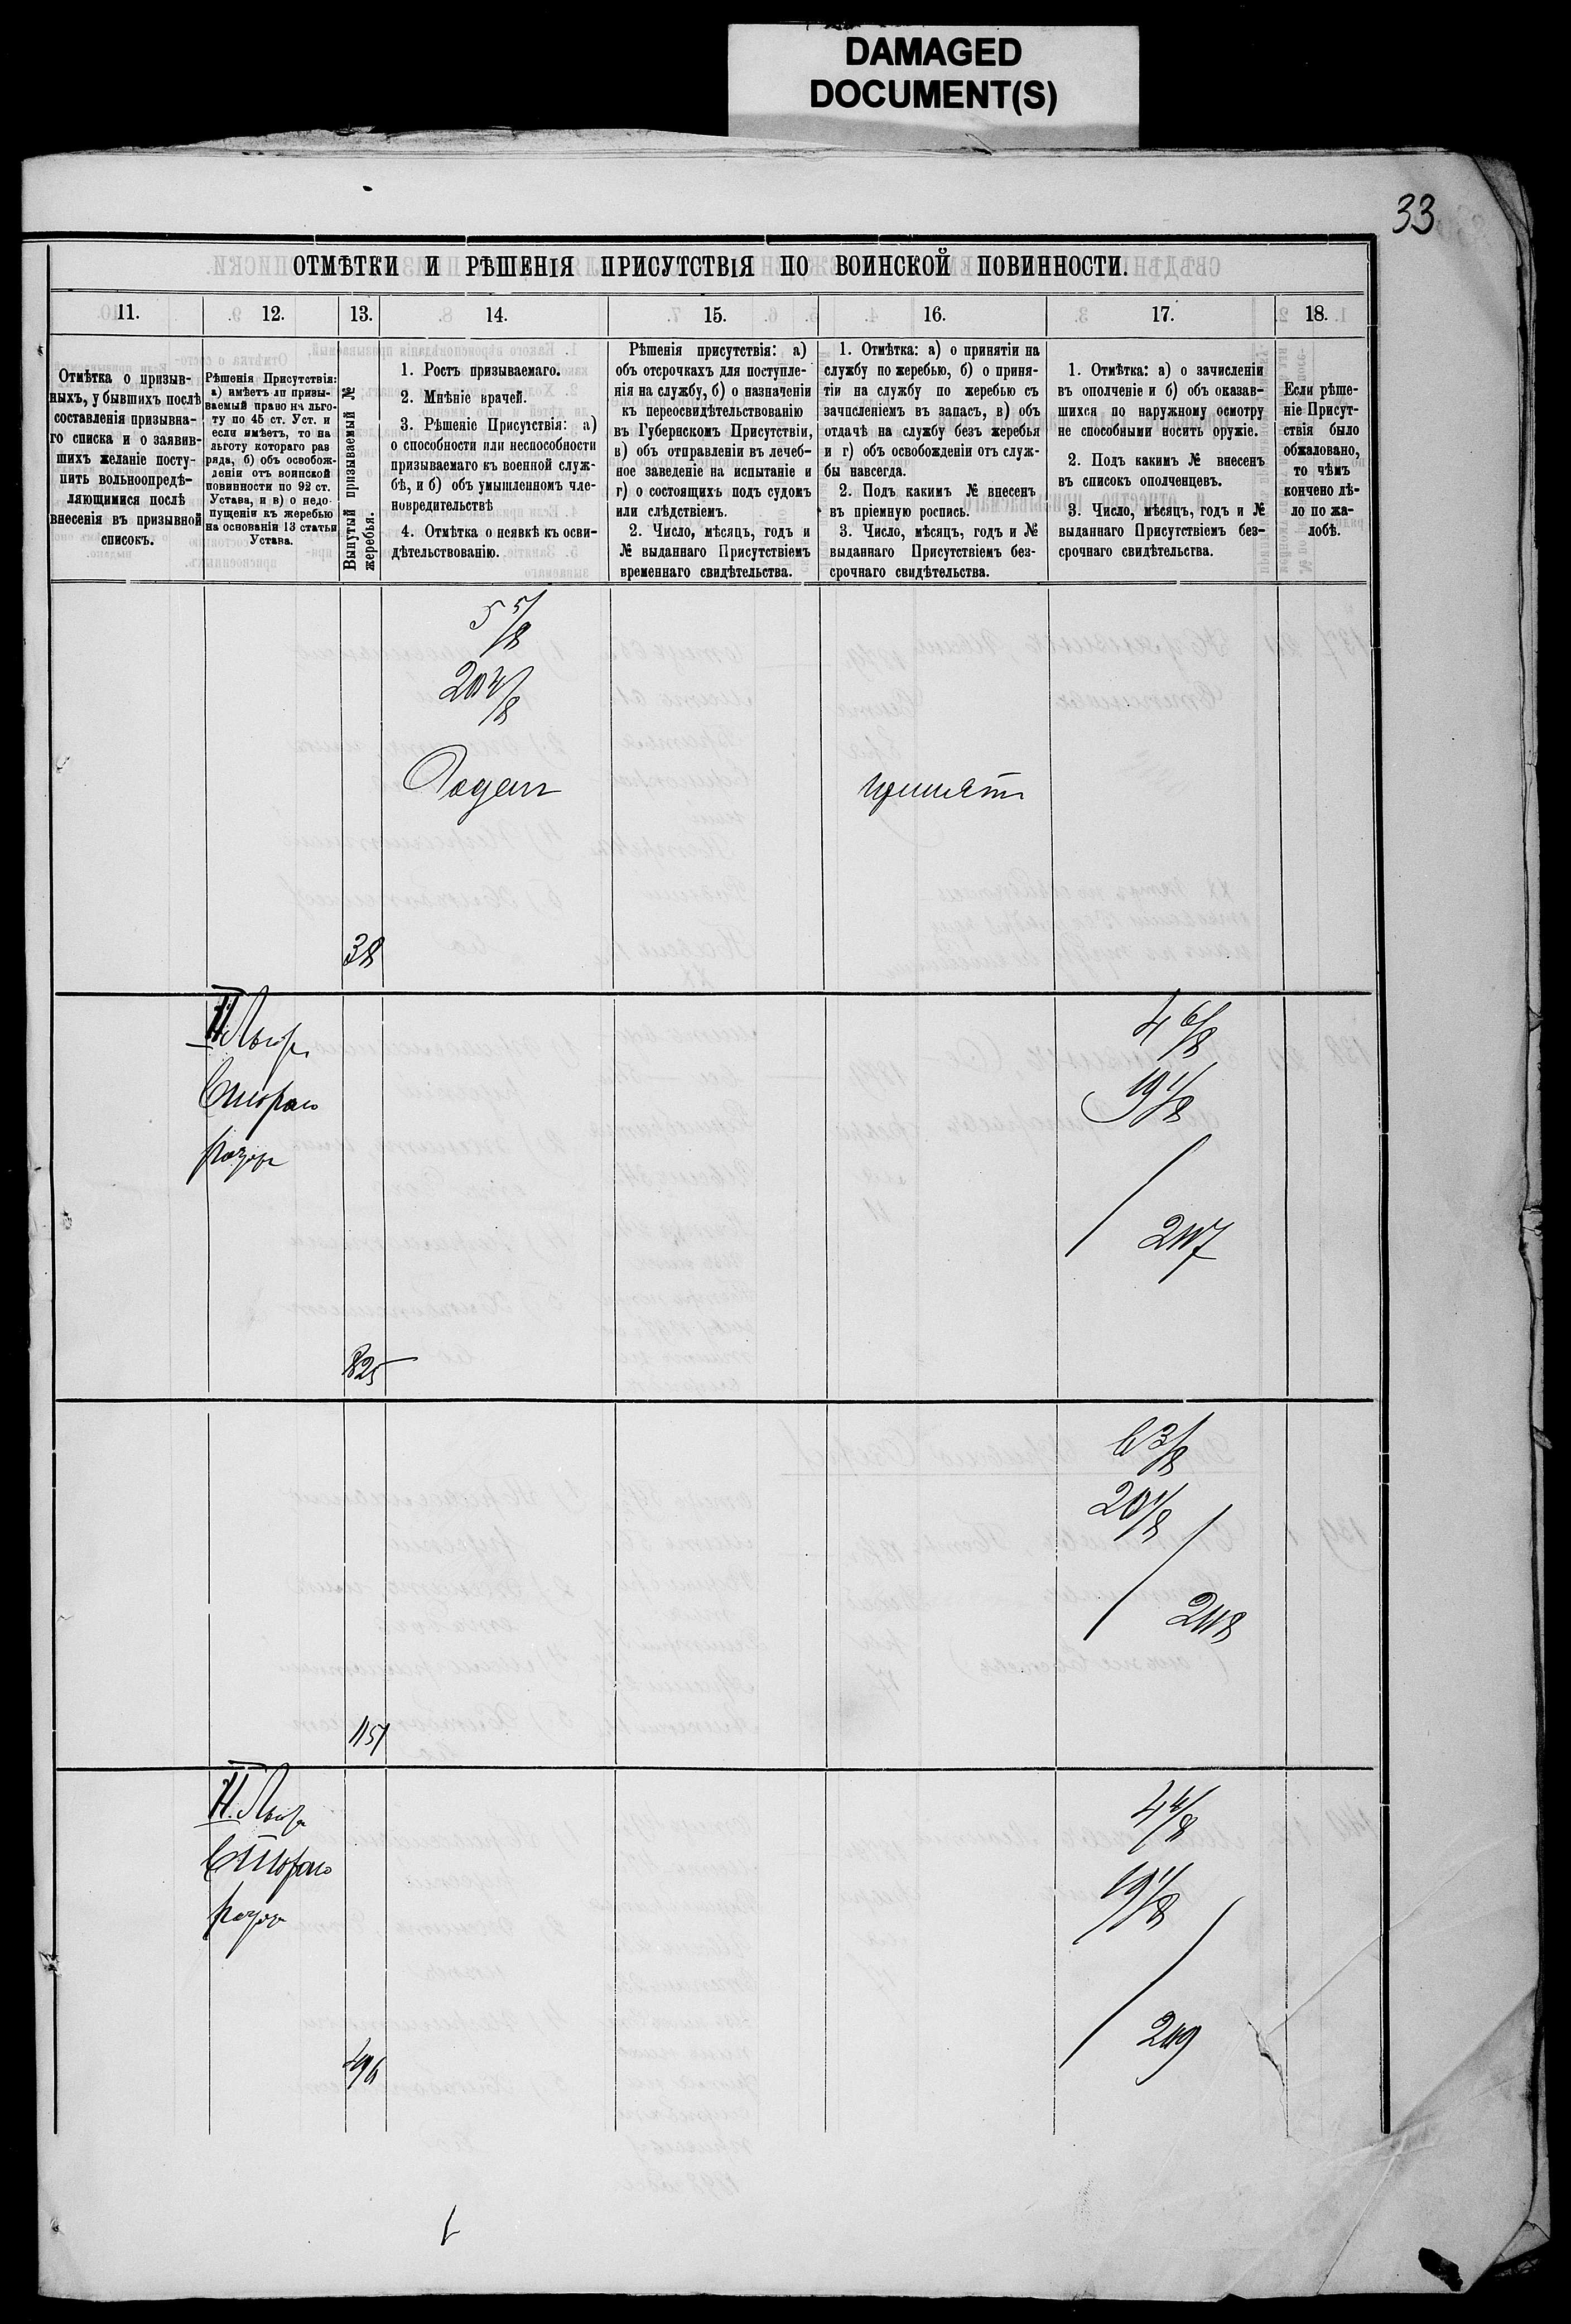 DAMAGED
DOCUMENT(S)
33
ОТМѢТКИ И РѢШЕНІЯ ПРИСУТСТВІЯ ПО ВОИНСКОЙ ПОВИННОСТИ.
11.
12.
13.
14.
15.
16.
17.
18.
Отмѣтка о призыв-
ныхъ, у бывшихъ послѣ
составленія призывна-
го списка и о заявив-
шихъ желаніе посту-
пить вольноопредѣ-
ляющимися послѣ
внесенія въ призывной
списокъ.
Рѣшенія Присутствія:
а) имѣетъ ли призы-
ваемый право на льго-
ту по 45 ст. Уст. и
если имѣетъ, то на
льготу котораго раз
ряда, б) объ освобож-
деніи отъ воинской
повинности по 92 ст.
Устава, и в) о недо-
пущеніи къ жеребью
на основаніи 13 статьи
Устава.
Вынутый призываемый №
жеребья.
1. Ростъ призываемаго.
2. Мнѣніе врачей.
3. Рѣшеніе Присутствія: а)
о способности или неспособности
призываемаго къ военной служ-
бѣ, и б) объ умышленномъ чле-
новредительствѣ
4. Отмѣтка о неявкѣ къ осви-
дѣтельствованію.
Рѣшенія присутствія: а)
объ отсрочкахъ для поступле-
нія на службу, б) о назначеніи
къ переосвидѣтельствованію
въ Губернскомъ Присутствіи,
в) объ отправленіи въ лечеб-
ное заведеніе на испытаніе и
г) о состоящихъ подъ судомъ
или слѣдствіемъ.
2. Число, мѣсяцъ, годъ и
№ выданнаго Присутствіемъ
временнаго свидѣтельства.
1. Отмѣтка: а) о принятіи на
службу по жеребью, б) о приня-
тіи на службу по жеребью съ
зачисленіемъ въ запасъ, в) объ
отдачѣ на службу безъ жеребья
и г) объ освобожденіи отъ служ-
бы навсегда.
2. Подъ какимъ № внесенъ
въ пріемную роспись.
3. Число, мѣсяцъ, годъ и №
выданнаго Присутствіемъ без-
срочнаго свидѣтельства.
1. Отмѣтка: а) о зачисленіи
въ ополченіе и б) объ оказав-
шихся по наружному осмотру
не способными носить оружіе.
2. Подъ какимъ № внесенъ
въ списокъ ополченцевъ.
3. Число, мѣсяцъ, годъ и №
выданнаго Присутствіемъ без-
срочнаго свидѣтельства.
Если рѣше-
ніе Присут-
ствія было
обжаловано,
то чѣмъ
кончено дѣ-
ло по жа-
лобѣ.
5 5/8
20 4/8
Годен
принят
38
II
Второго
разр
4 6/8
19 1/8
207
825
6 3/8
20 1/8
208
1151
II
Второго
разр
4 4/8
19 1/8
209
496